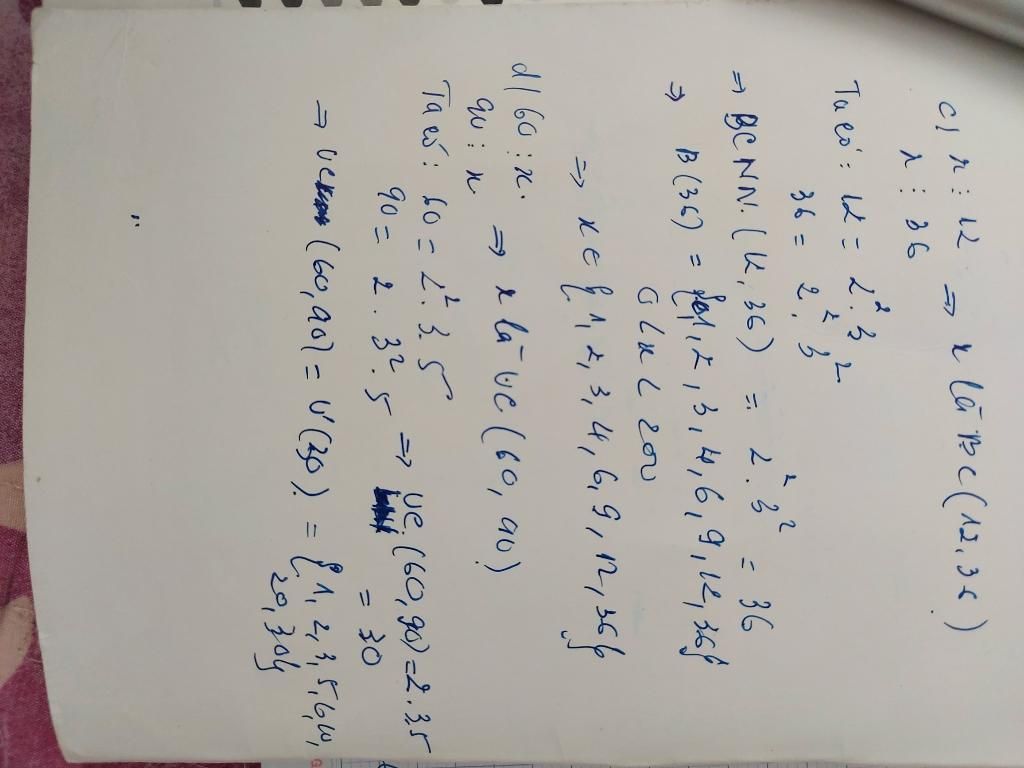 c) x ⋮ 12 ⇒ x là BC(12,36)
x ⋮ 36
Ta có: 12 = 2².3
36 = 2².3²
⇒ BCNN(12,36) = 2².3² = 36
⇒ B(36) = {1,2,3,4,6,9,12,36}
0 < x < 200
⇒ x ∈ {1,2,3,4,6,9,12,36}
d) 60 ⋮ x.
90 ⋮ x ⇒ x là ƯC(60,90)
Ta có: 60 = 2².3.5
90 = 2.3².5 ⇒ ƯC(60,90) = 2.3.5
= 30
⇒ ƯC(60,90) = Ư(30) = {1,2,3,5,6,10,
20,30}